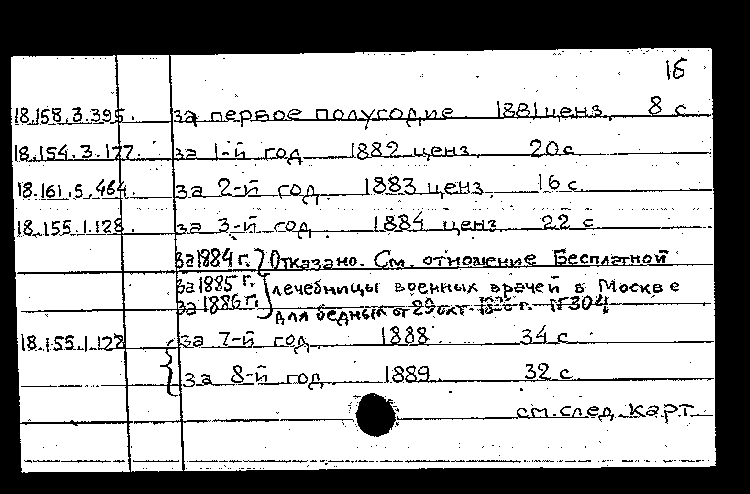 16
18.158.3.395. за первое полугодие 1881 ценз. 8 с
18.154.3.177. за 1-й год 1882 ценз. 20 с
18.161.5.464. за 2-й год 1883 ценз 16 с.
18.155.1.128. за 3-й год 1884 ценз. 22 с
за 1884 г. } Отказано. См. отношение Бесплатной
за 1885 г. лечебницы военных врачей в Москве
за 1886 г. для бедных от 29 окт. г. № 304
18.155.1.128 { за 7-й год 1888 34 с
за 8-й год 1889 32 с
см. след. карт